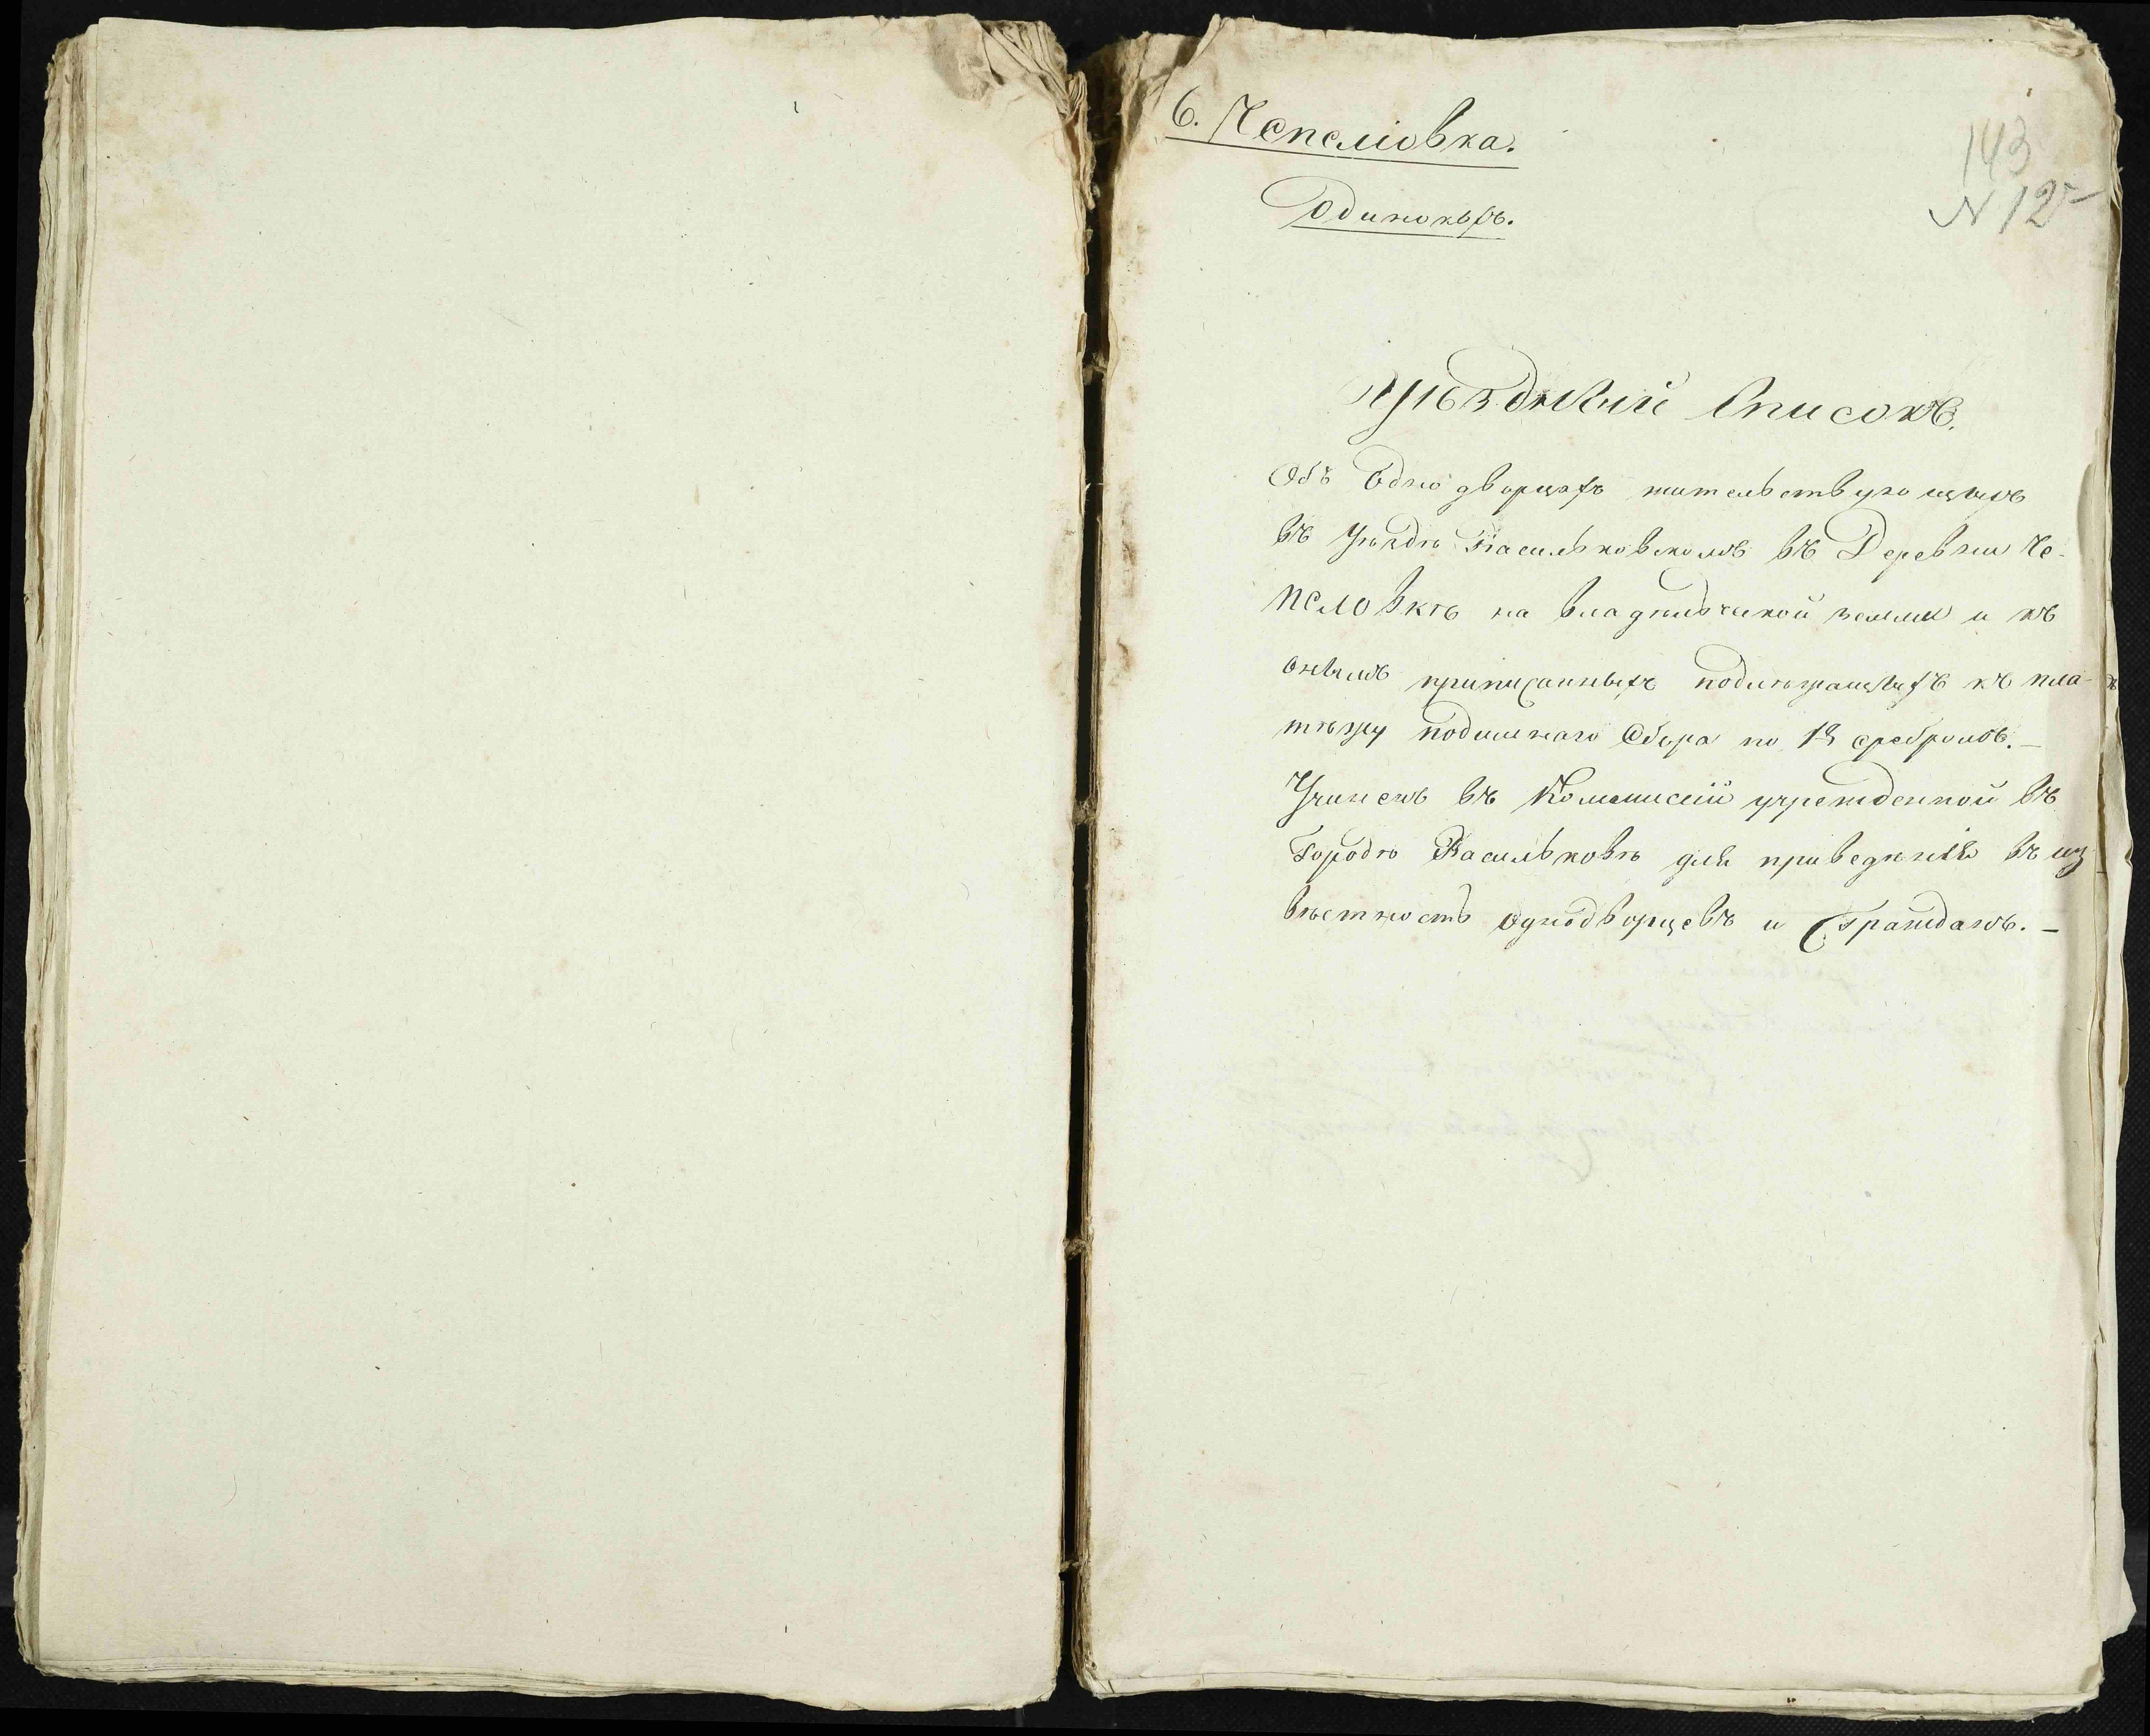 6. Чепеліовка.
Одинокъхъ.
143
N 12
Уѣздный Списокъ.
Объ Однодворцахъ жительствующихъ
въ Уѣздѣ Васильковскомъ въ Деревни Че-
пеліовкѣ на владѣльческой земли и къ
онымъ приписанныхъ подлежащихъ къ пла-
тежу подымнаго Сбора по 1 р. сребромъ.—
Учиненъ въ Коммисіи учрежденной въ
Городѣ Васильковѣ для приведенія въ из
вѣстность однодворцевъ и Гражданъ.—